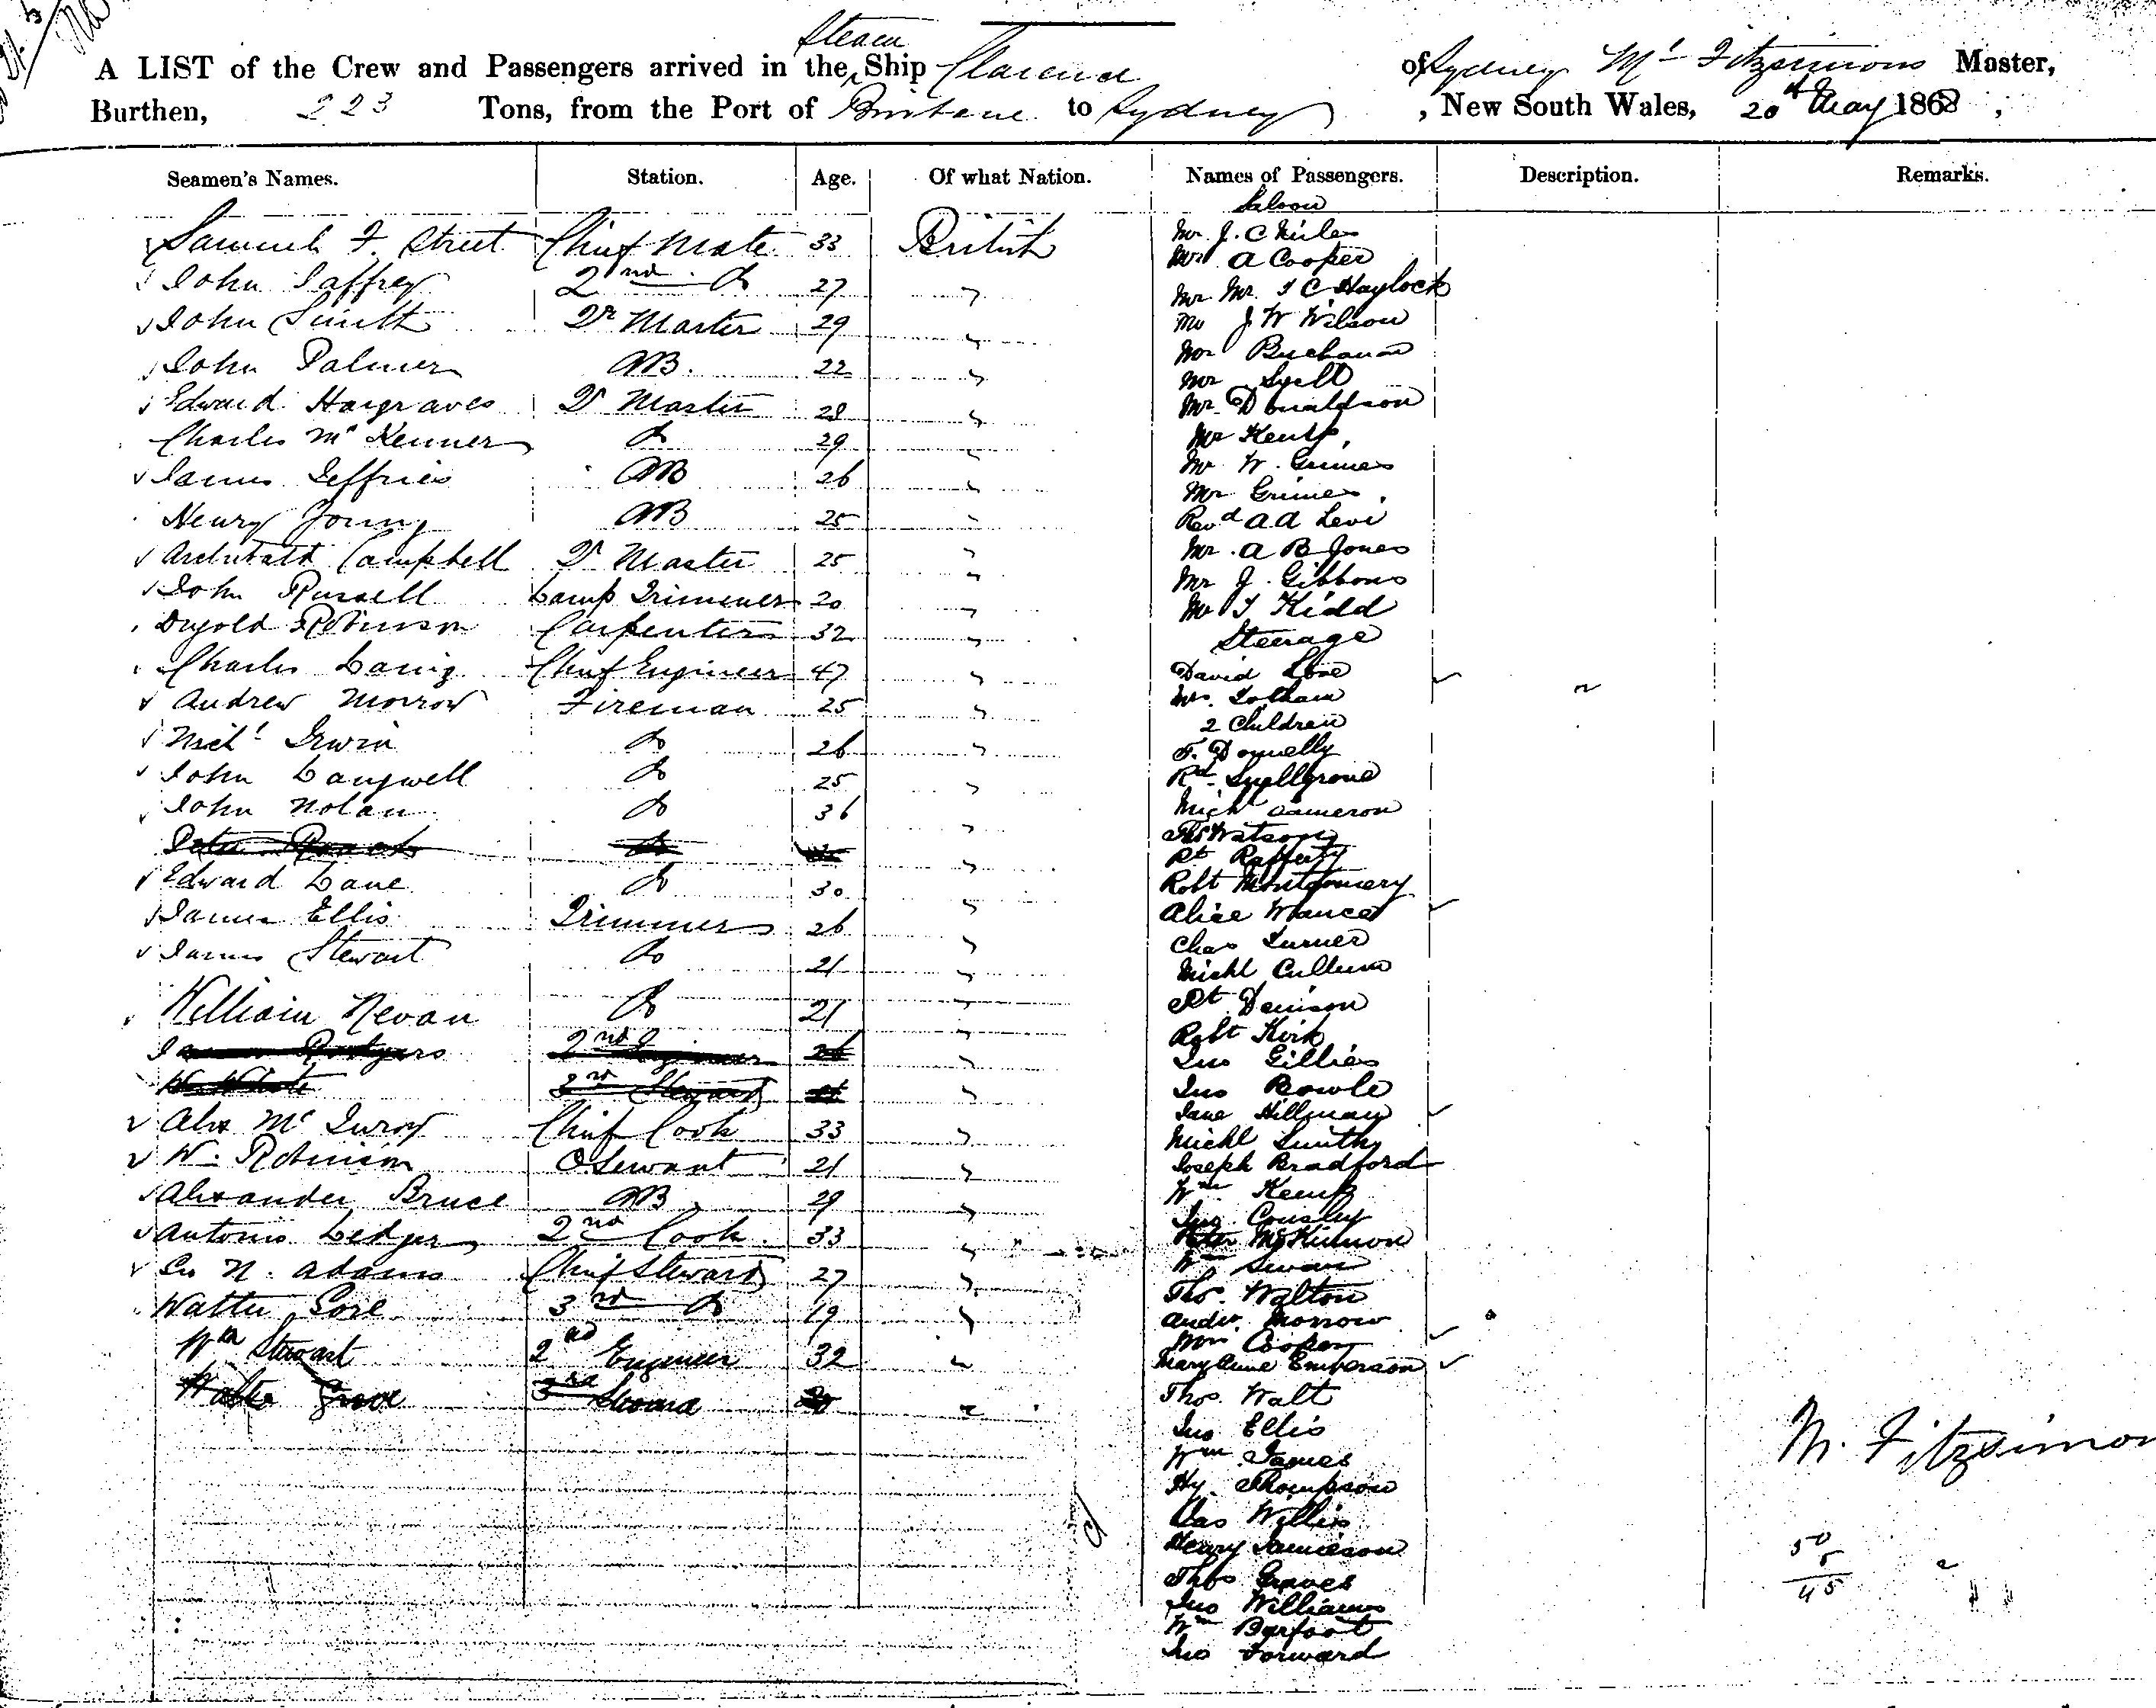 A LIST of the Crew and Passengers arrived in the Steam Ship Clarence of Sydney Ml Fitzsimons Master,
Burthen, 223 Tons, from the Port of Brisbane to Sydney, New South Wales, 20th May 1868,
Seamen's Names. Station. Age. Of what Nation. Names of Passengers. Description. Remarks.
Samuel F. Street Chief Mate 33 British
John Jaffrey 2nd Do 27 "
John Smith Qr Master 29 "
John Palmer AB. 22 "
Edward Hargraves Qr Master 28 "
Charles Mc Kenner Do 29 "
James Jeffries AB 26 "
Henry Young AB 25 "
Archibald Campbell Qr Master 25 "
John Russell Lamp Trimmer 20 "
Dugold Robinson Carpenter 32 "
Charles Laing Chief Engineer 47 "
Andrew Morrow Fireman 25 "
Michl Irwin Do 26 "
John Langwell Do 25 "
John Nolan Do 36 "
Peter Do "
Edward Lane Do 30 "
James Ellis Trimmer 26 "
James Stewart Do 21 "
William Nevan Do 21 "
James Rodgers 2nd Engineer 26 "
W White 2nd Steward "
Alex Mc Ilroy Chief Cook 33 "
W. Robinson O. Servant 21 "
Alexander Bruce AB 29 "
Antonio Ledger 2nd Cook 33 "
Geo N. Adams Chief Steward 27 "
Walter Gore 3rd Do 19 "
Wm Stewart 2nd Engineer 32 "
Walter Grove 3rd Steward 20 "
Saloon
Mr J. C Miles
Mr A Cooper
Mr Mr T C Haylock
Mr J W Wilson
Mr Buchanan
Mr Syell
Mr Donaldson
Mr Kemp,
Mr W. Grimes
Mr Grimes,
Revd A A Levi
Mr. A B Jones
Mr J. Gibbons
Mr T Kidd
Steerage
David Love
Mrs. Lotham
2 Children
F. Donnelly
Rd Snellgrove
Mich Cameron
Thos Watson
Pt Rafferty
Robt Montgomery
Alice Wance
Chas Turner
Michl Cullum
Pt Denison
Robt Kirk
Jno Gillies
Jno Bowle
Jane Hillman
Michl Smith
Joseph Bradford
Wm Kemp
Jno. Cousley
Peter McKinnon
Wm Swan
Thos. Walton
Andw. Morrow
Mrs. Cooper
Mary Anne Emberson
Thos. Walt
Jno Ellis
Wm James
Hy. Thompson
Chas Willis
Henry Jamieson
Thos Graves
Jno Williams
Wm Barfoot
Jno Forward
M. Fitzsimon
50
5
45